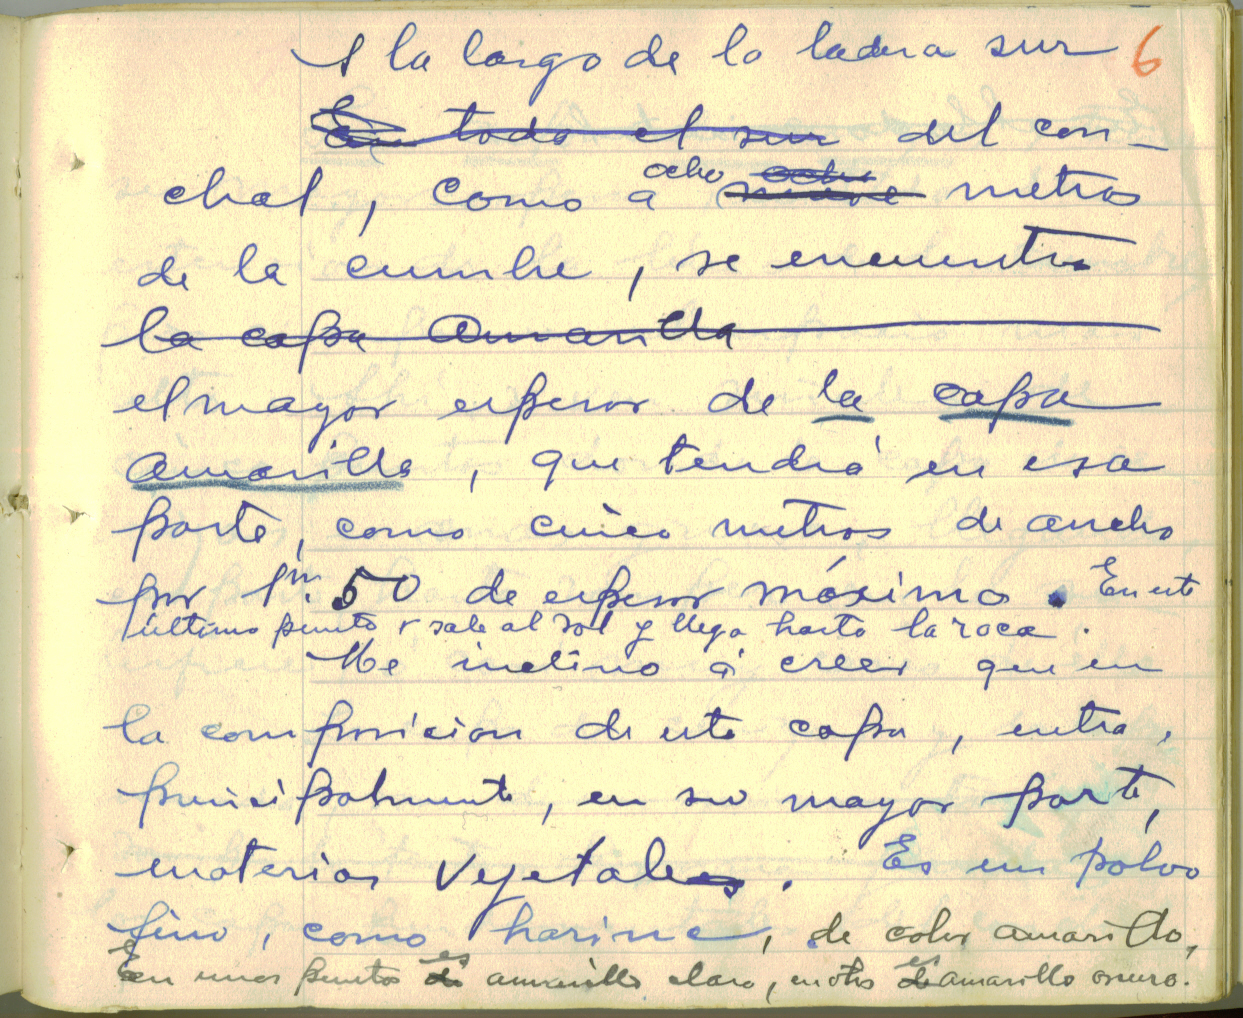 A la largo de la ladera sur 6
En todo el sur del con-
chal, como a ocho ocho nueve metros
de la cumbre, se encuentra
la capa amarilla
el mayor espesor de la capa
amarilla, que tendrá en esa
parte, como cinco metros de ancho
por 1m 50 de espesor máximo. En este
último punto sale al sol y llega hasta la roca.
Me inclino á creer que en
la composicion de esta capa, entra,
principalmente, en su mayor parte,
materias vejetales. Es un polvo
fino, como harina, de color amarillo,
En unos puntos es amarillo claro, en otros es amarillo oscuro.